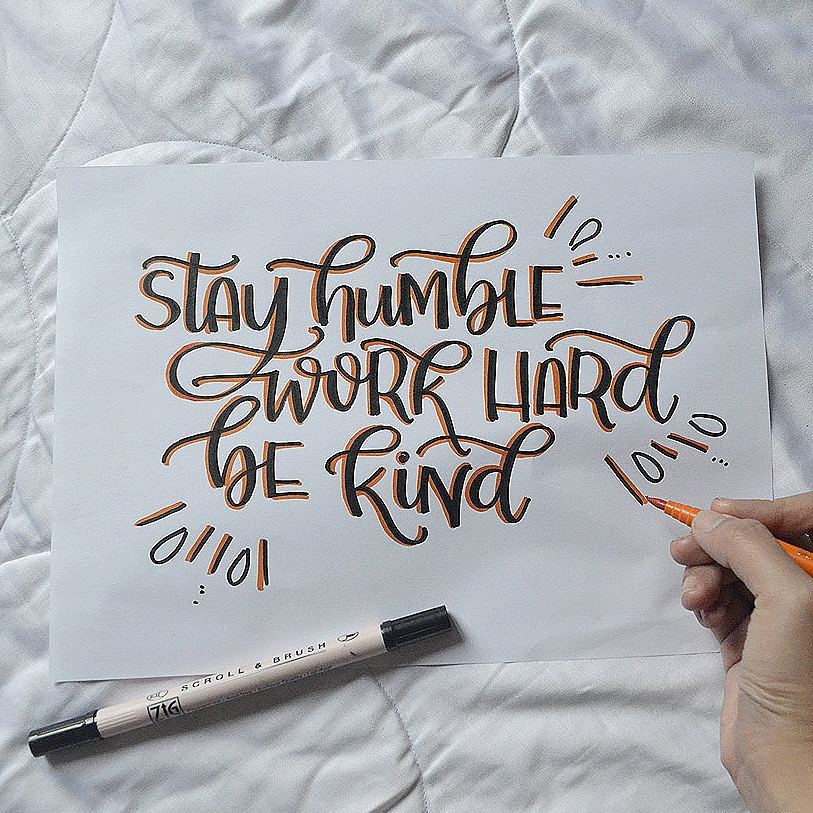 STAY humble
WORK HARD
BE KIND
SCROLL & BRUSH